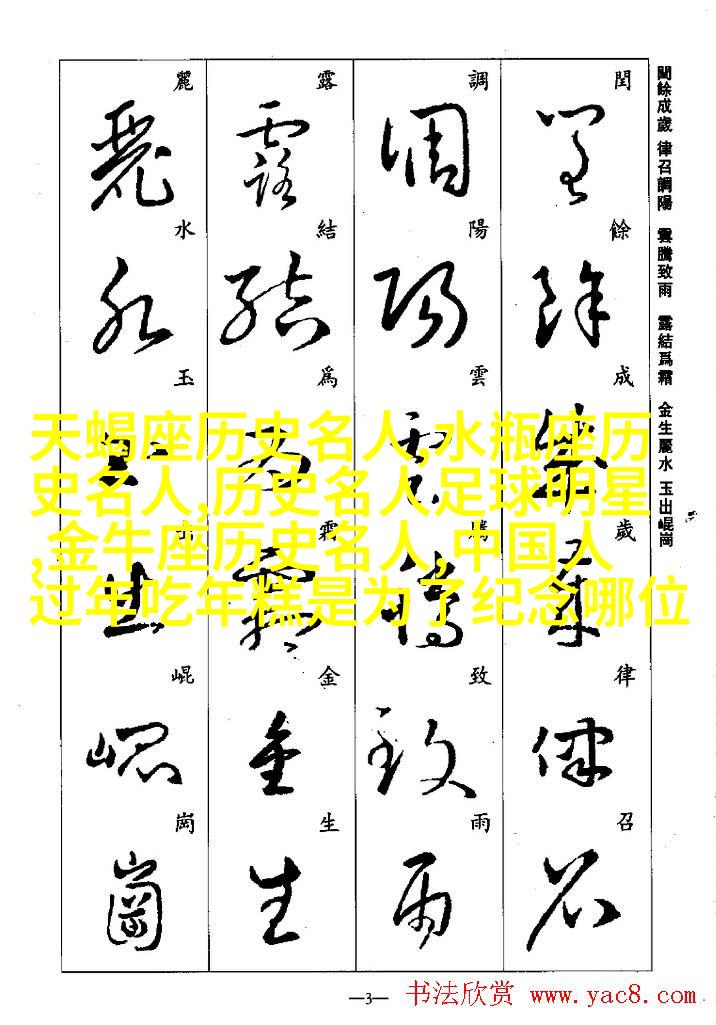 閏餘成歲 律召調陽 雲騰致雨 露結爲霜 金生麗水 玉出崐崗
閏 餘 成 歲 律 召
調 陽 雲 騰 致 雨
露 結 爲 霜 金 生
麗 水 玉 出 崐 崗
天蝎座历史名人,水瓶座历
史名人,历史名人足球明星
,金牛座历史名人,中国人
过年吃年糕是为了纪念哪位
—3—
书法欣赏 www.yac8.com